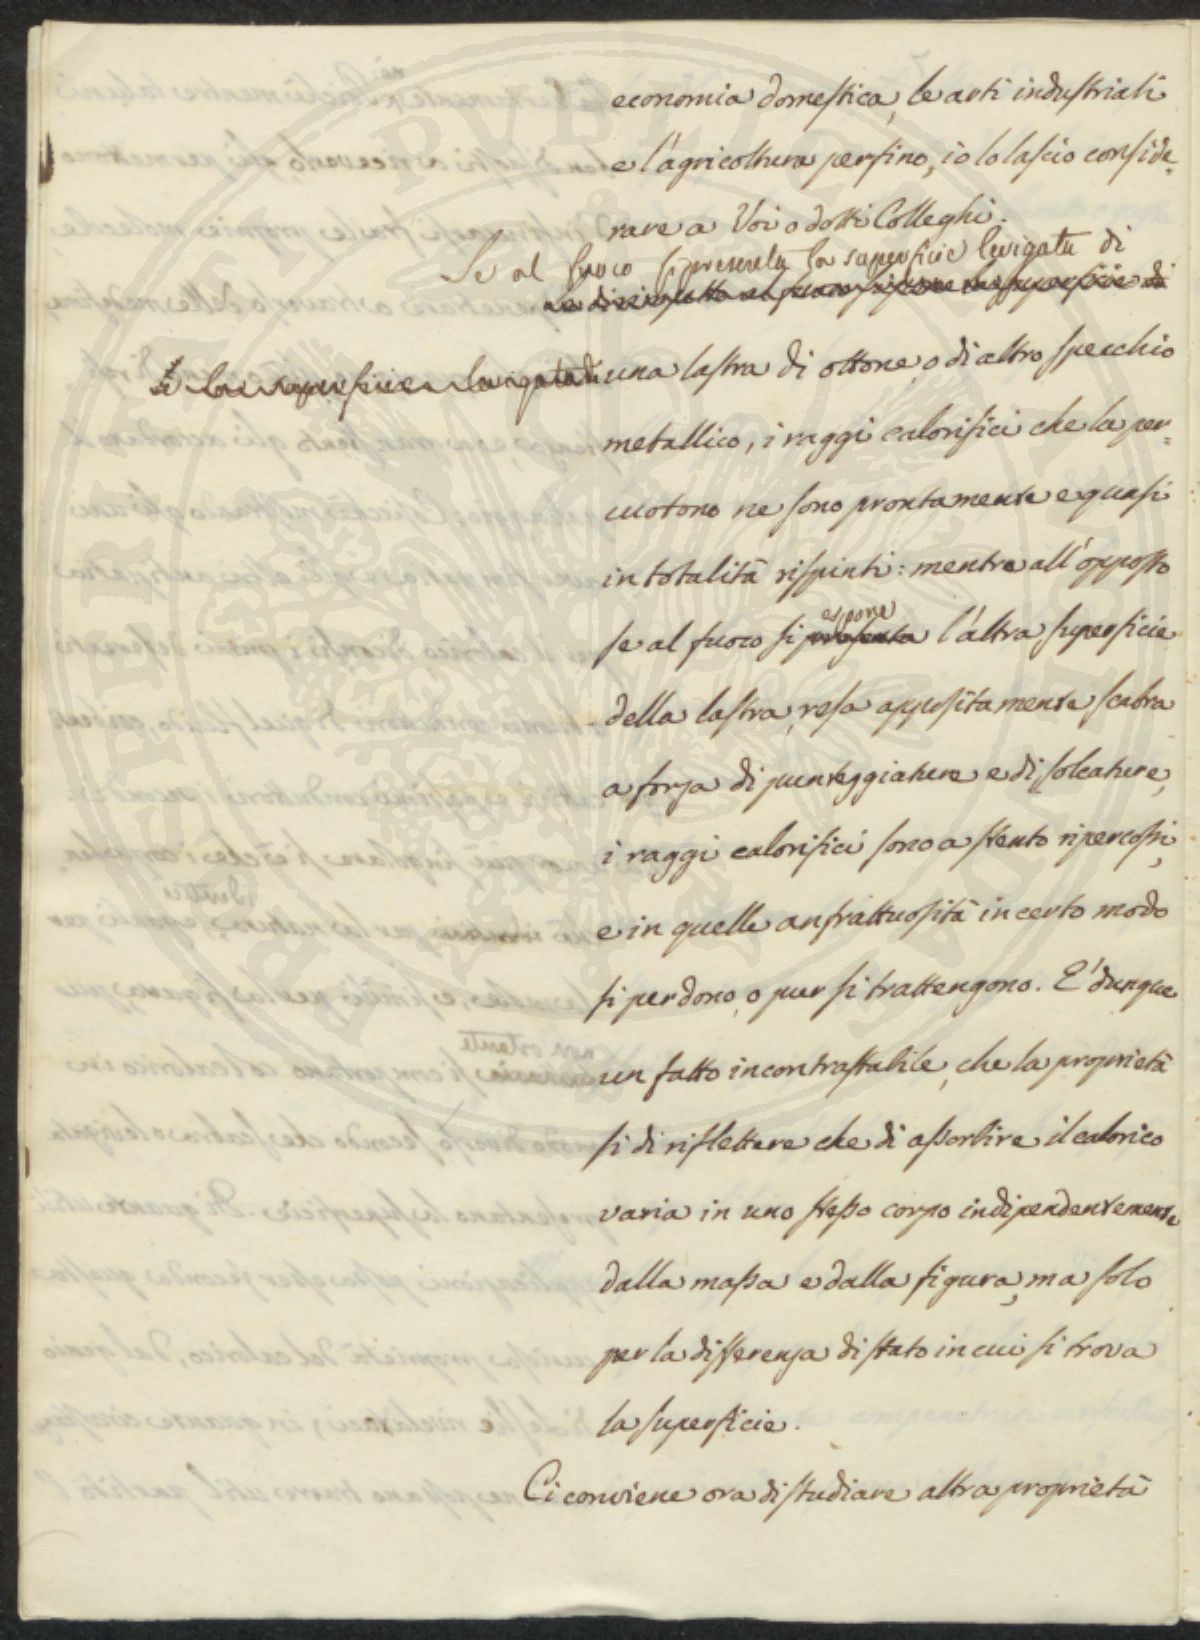 economia domestica, le arti industriali
e l'agricoltura persino, io lo lascio conside-
rare a Voi o dotti Colleghi.
Se al fuoco si presenta la superficie levigata di
al fuoco la superficie di
la superficie levigata di una lastra di ottone, o di altro specchio
metallico, i raggi calorifici che la per-
cuotono ne sono prontamente e quasi
in totalità rispinti: mentre all'opposto
espone
se al fuoco si presenta l'altra superficie
della lastra, resa appositamente scabra
a forza di punteggiature e di solcature,
i raggi calorifici sono a stento ripercossi,
e in quelle anfrattuosità in certo modo
si perdono, o pur si trattengono. E' dunque
un fatto incontrastabile, che la proprietà
sì di riflettere che di assorbire il calorico
varia in uno stesso corpo indipendentemente
dalla massa e dalla figura, ma solo
per la differenza di stato in cui si trova
la superficie.
Ci conviene ora di studiare altra proprietà